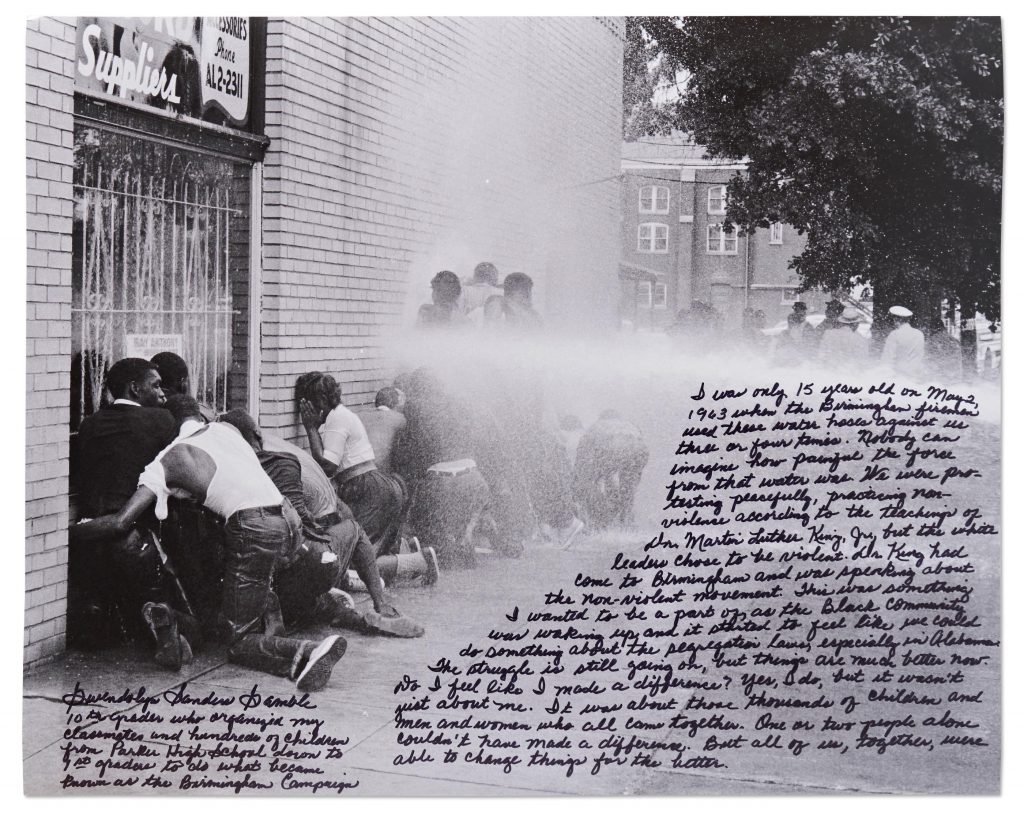 Suppliers
ACCESSORIES
Phone
AL2-2311
I was only 15 years old on May 2,
1963 when the Birmingham firemen
used these water hoses against us
three or four times. Nobody can
imagine how painful the force
from that water was. We were pro-
testing peacefully, practicing non-
violence according to the teachings of
Dr. Martin Luther King, Jr, but the white
leaders chose to be violent. Dr. King had
come to Birmingham and was speaking about
the non-violent movement. This was something
I wanted to be a part of, as the Black Community
was waking up, and it started to feel like we could
do something about the segregation laws, especially in Alabama.
The struggle is still going on, but things are much better now.
Do I feel like I made a difference? Yes, I do, but it wasn't
just about me. It was about those thousands of children and
men and women who all came together. One or two people alone
couldn't have made a difference. But all of us, together, were
able to change things for the better.
Gwendolyn Sanders Gamble
10th Grader who organized my
classmates and hundreds of children
from Parker High School down to
1st graders to do what became
known as the Birmingham Campaign